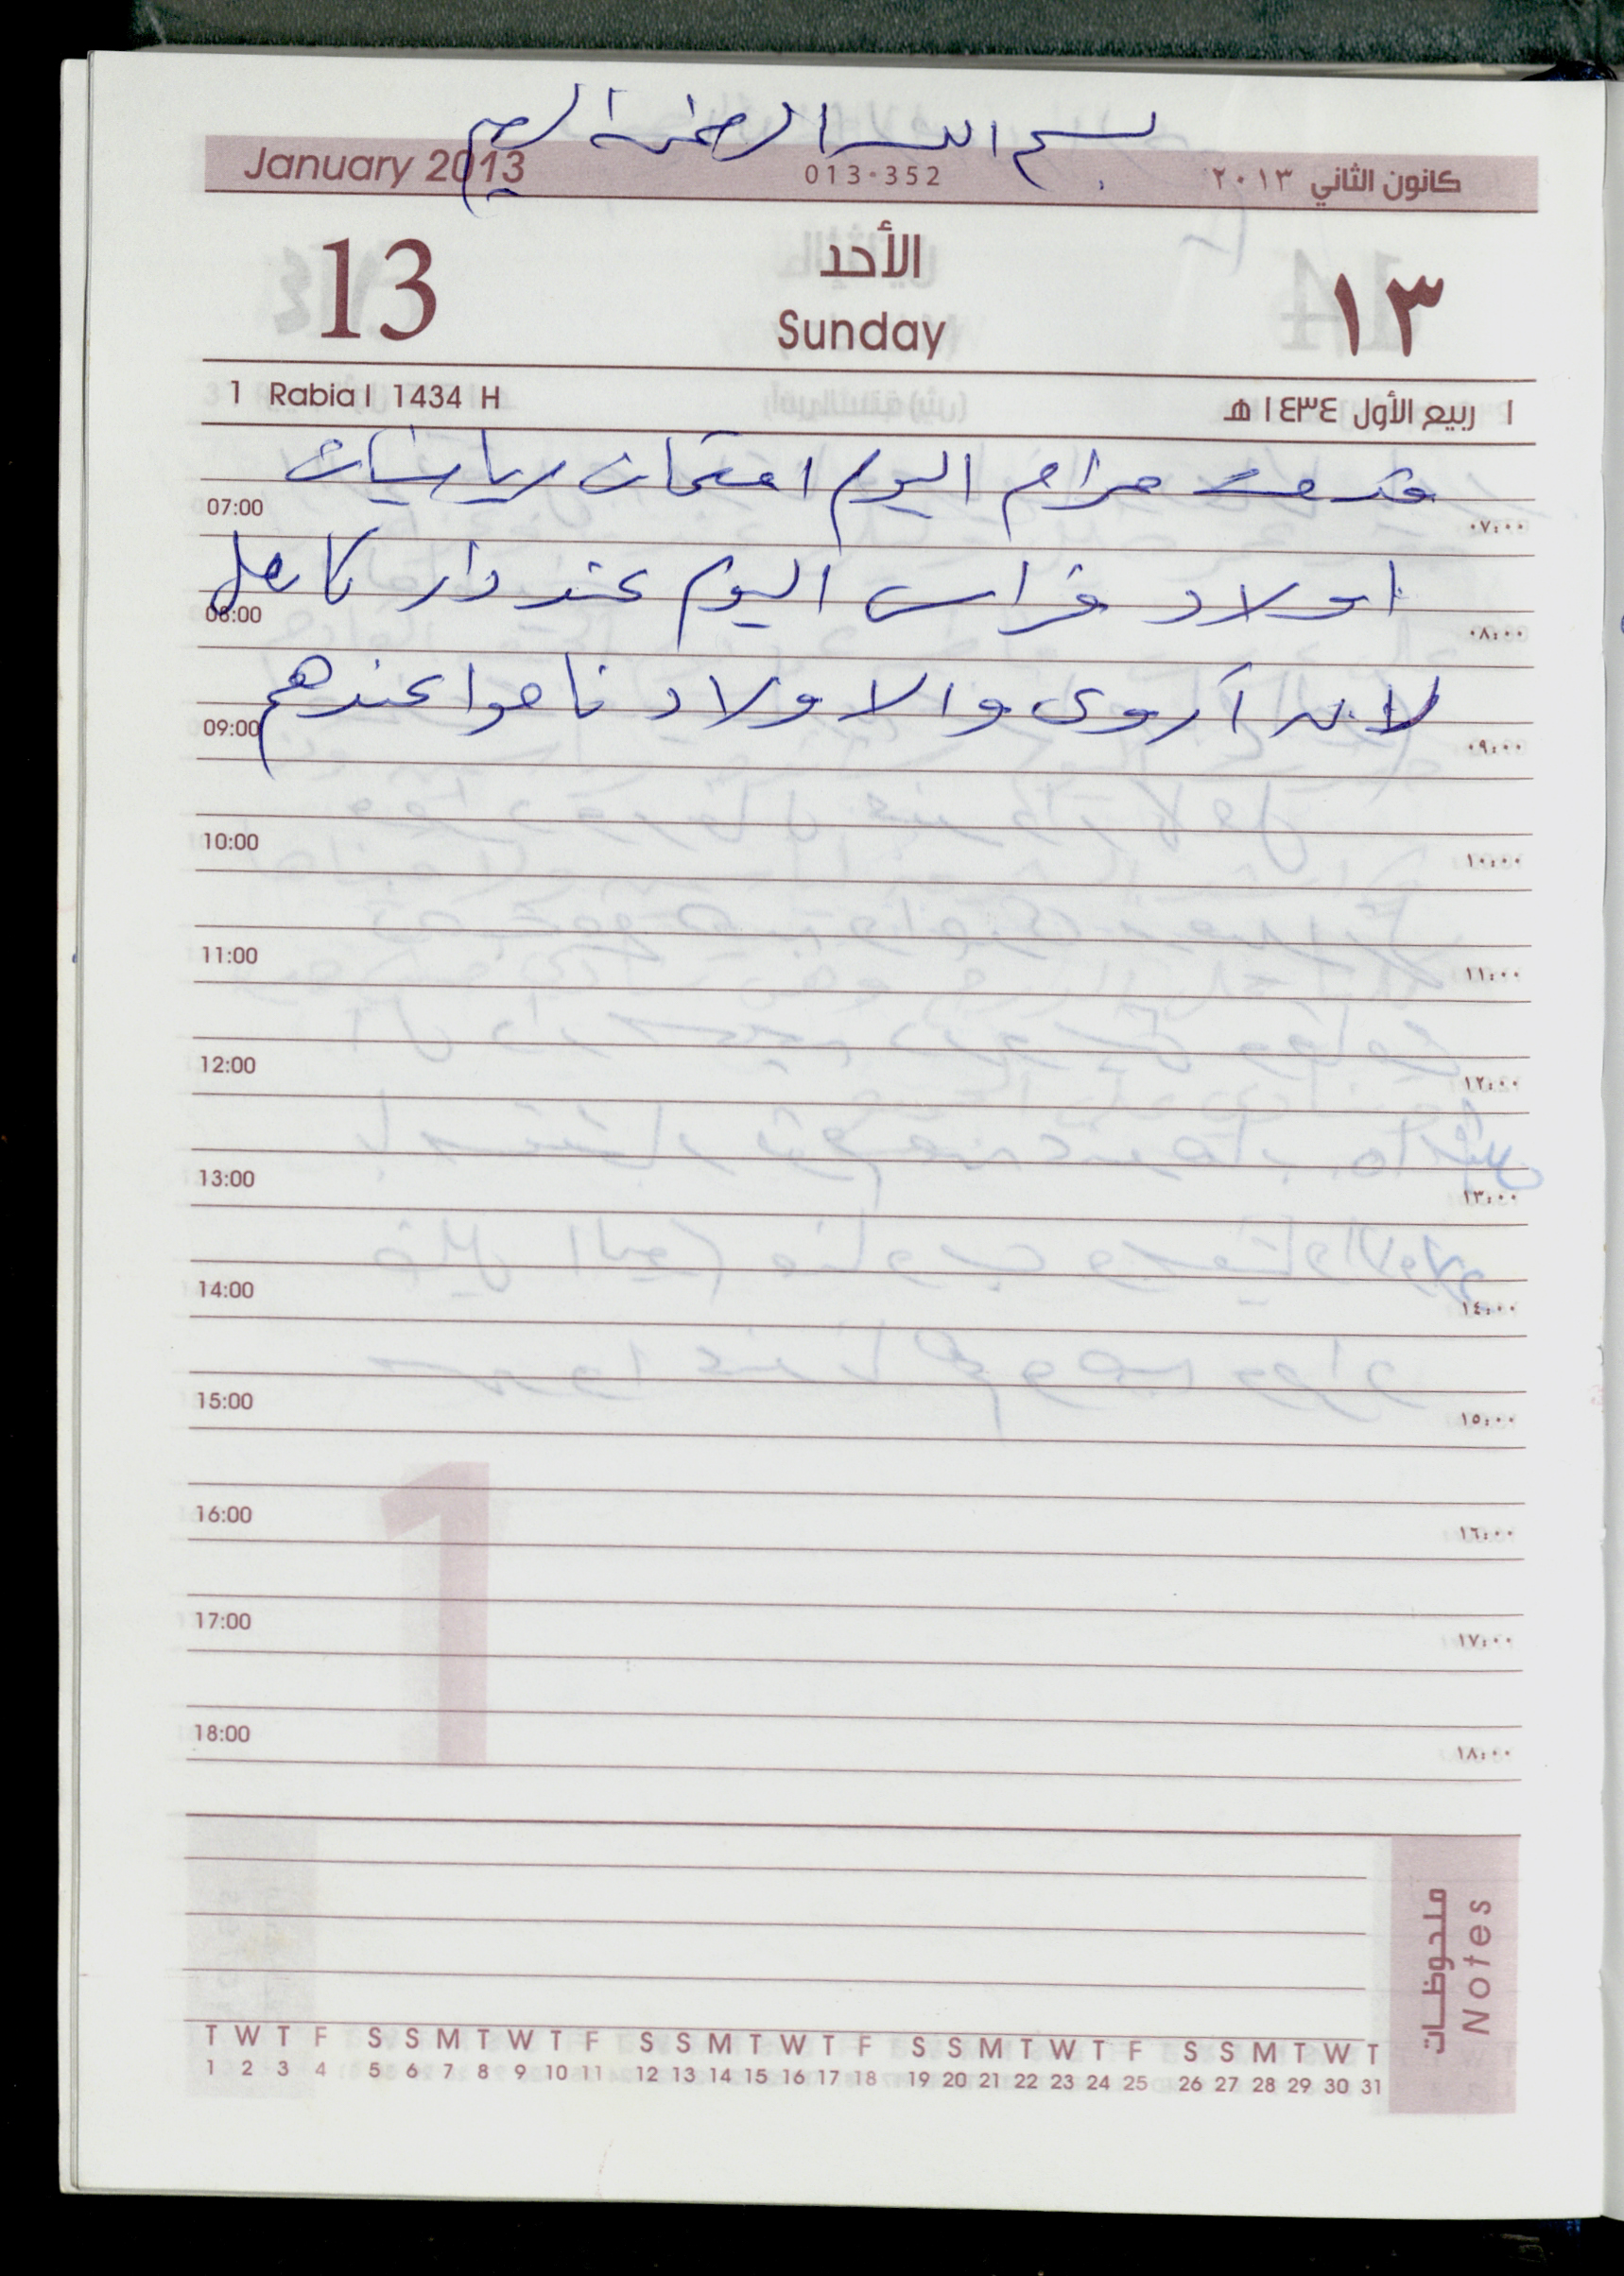 بسم الله الرحمن الرحيم
January 2013 013-352 كانون الثاني ٢٠١٣
13 الأحد ١٣
Sunday
1 Rabia I 1434 H ١ ربيع الأول ١٤٣٤ هـ
قدمت مرام اليوم امتحان رياضيات
07:00 ٠٧:٠٠
اولاد فراس اليوم عند دار كامل
08:00 ٠٨:٠٠
لان أروى والاولاد ناموا عندهم
09:00 ٠٩:٠٠
10:00 ١٠:٠٠
11:00 ١١:٠٠
12:00 ١٢:٠٠
13:00 ١٣:٠٠
14:00 ١٤:٠٠
15:00 ١٥:٠٠
16:00 ١٦:٠٠
17:00 ١٧:٠٠
18:00 ١٨:٠٠
1
ملحوظات
Notes
T W T F S S M T W T F S S M T W T F S S M T W T F S S M T W T
1 2 3 4 5 6 7 8 9 10 11 12 13 14 15 16 17 18 19 20 21 22 23 24 25 26 27 28 29 30 31